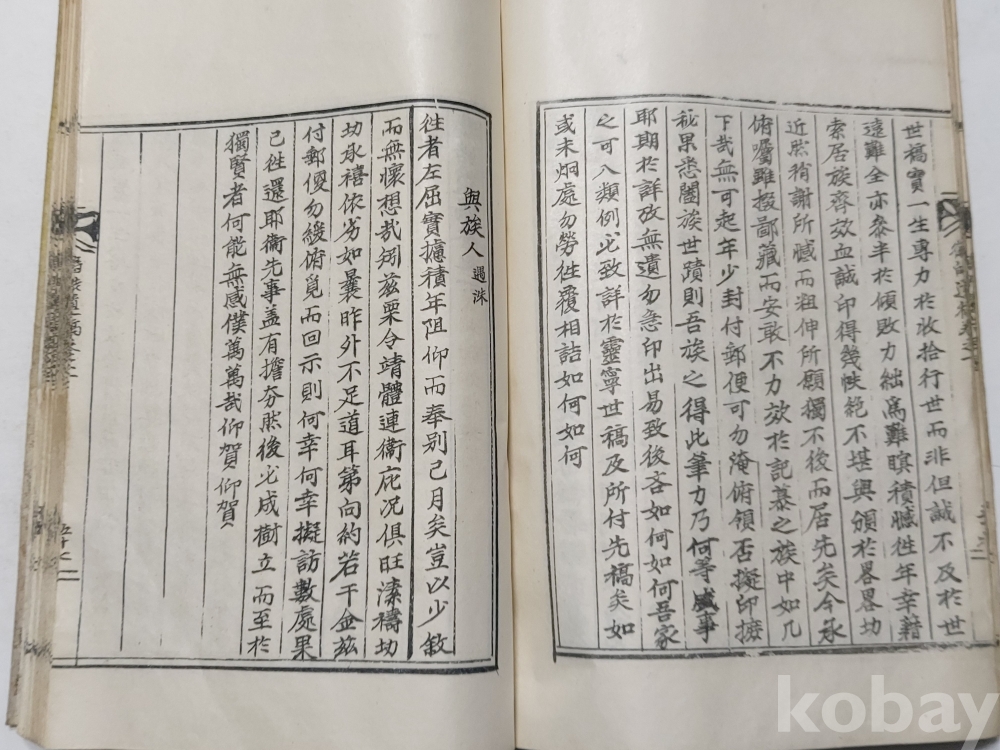 世稿實一生專力於收拾行世而非但誠不及於世
遠難全亦參半於傾敗力絀爲難瞑積憾徃年幸藉
索居族齊效血誠印得幾帙絶不堪與頒於畧畧切
近然稍謝所憾而粗伸所願獨不後而居先矣今承
俯囑雖掇鄙藏而安敢不力效於記纂之族中如几
下哉無可起年少封付郵便可勿淹俯領否擬印據
秘果悉闔族世蹟則吾族之得此筆力乃何等盛事
耶期於詳放無遺勿急印出易致後吝如何如何吾家
之可入類例必致詳於靈寧世稿及所付先稿矣如
或未烱處勿勞徃覆相詰如何如何
與族人 遇洙
徃者左屈實攄積年阻仰而奉別已月矣豈以少敘
而無懷想哉矧玆栗令靖體連衛庇況俱旺溱禱切
切永禧依劣如曩昨外不足道耳第向約若干金玆
付郵便勿緩俯覓而回示則何幸何幸擬訪數處果
已徃還耶衛先事盖有擔夯然後必成樹立而至於
獨賢者何能無感僕萬萬哉仰賀仰賀
kobay